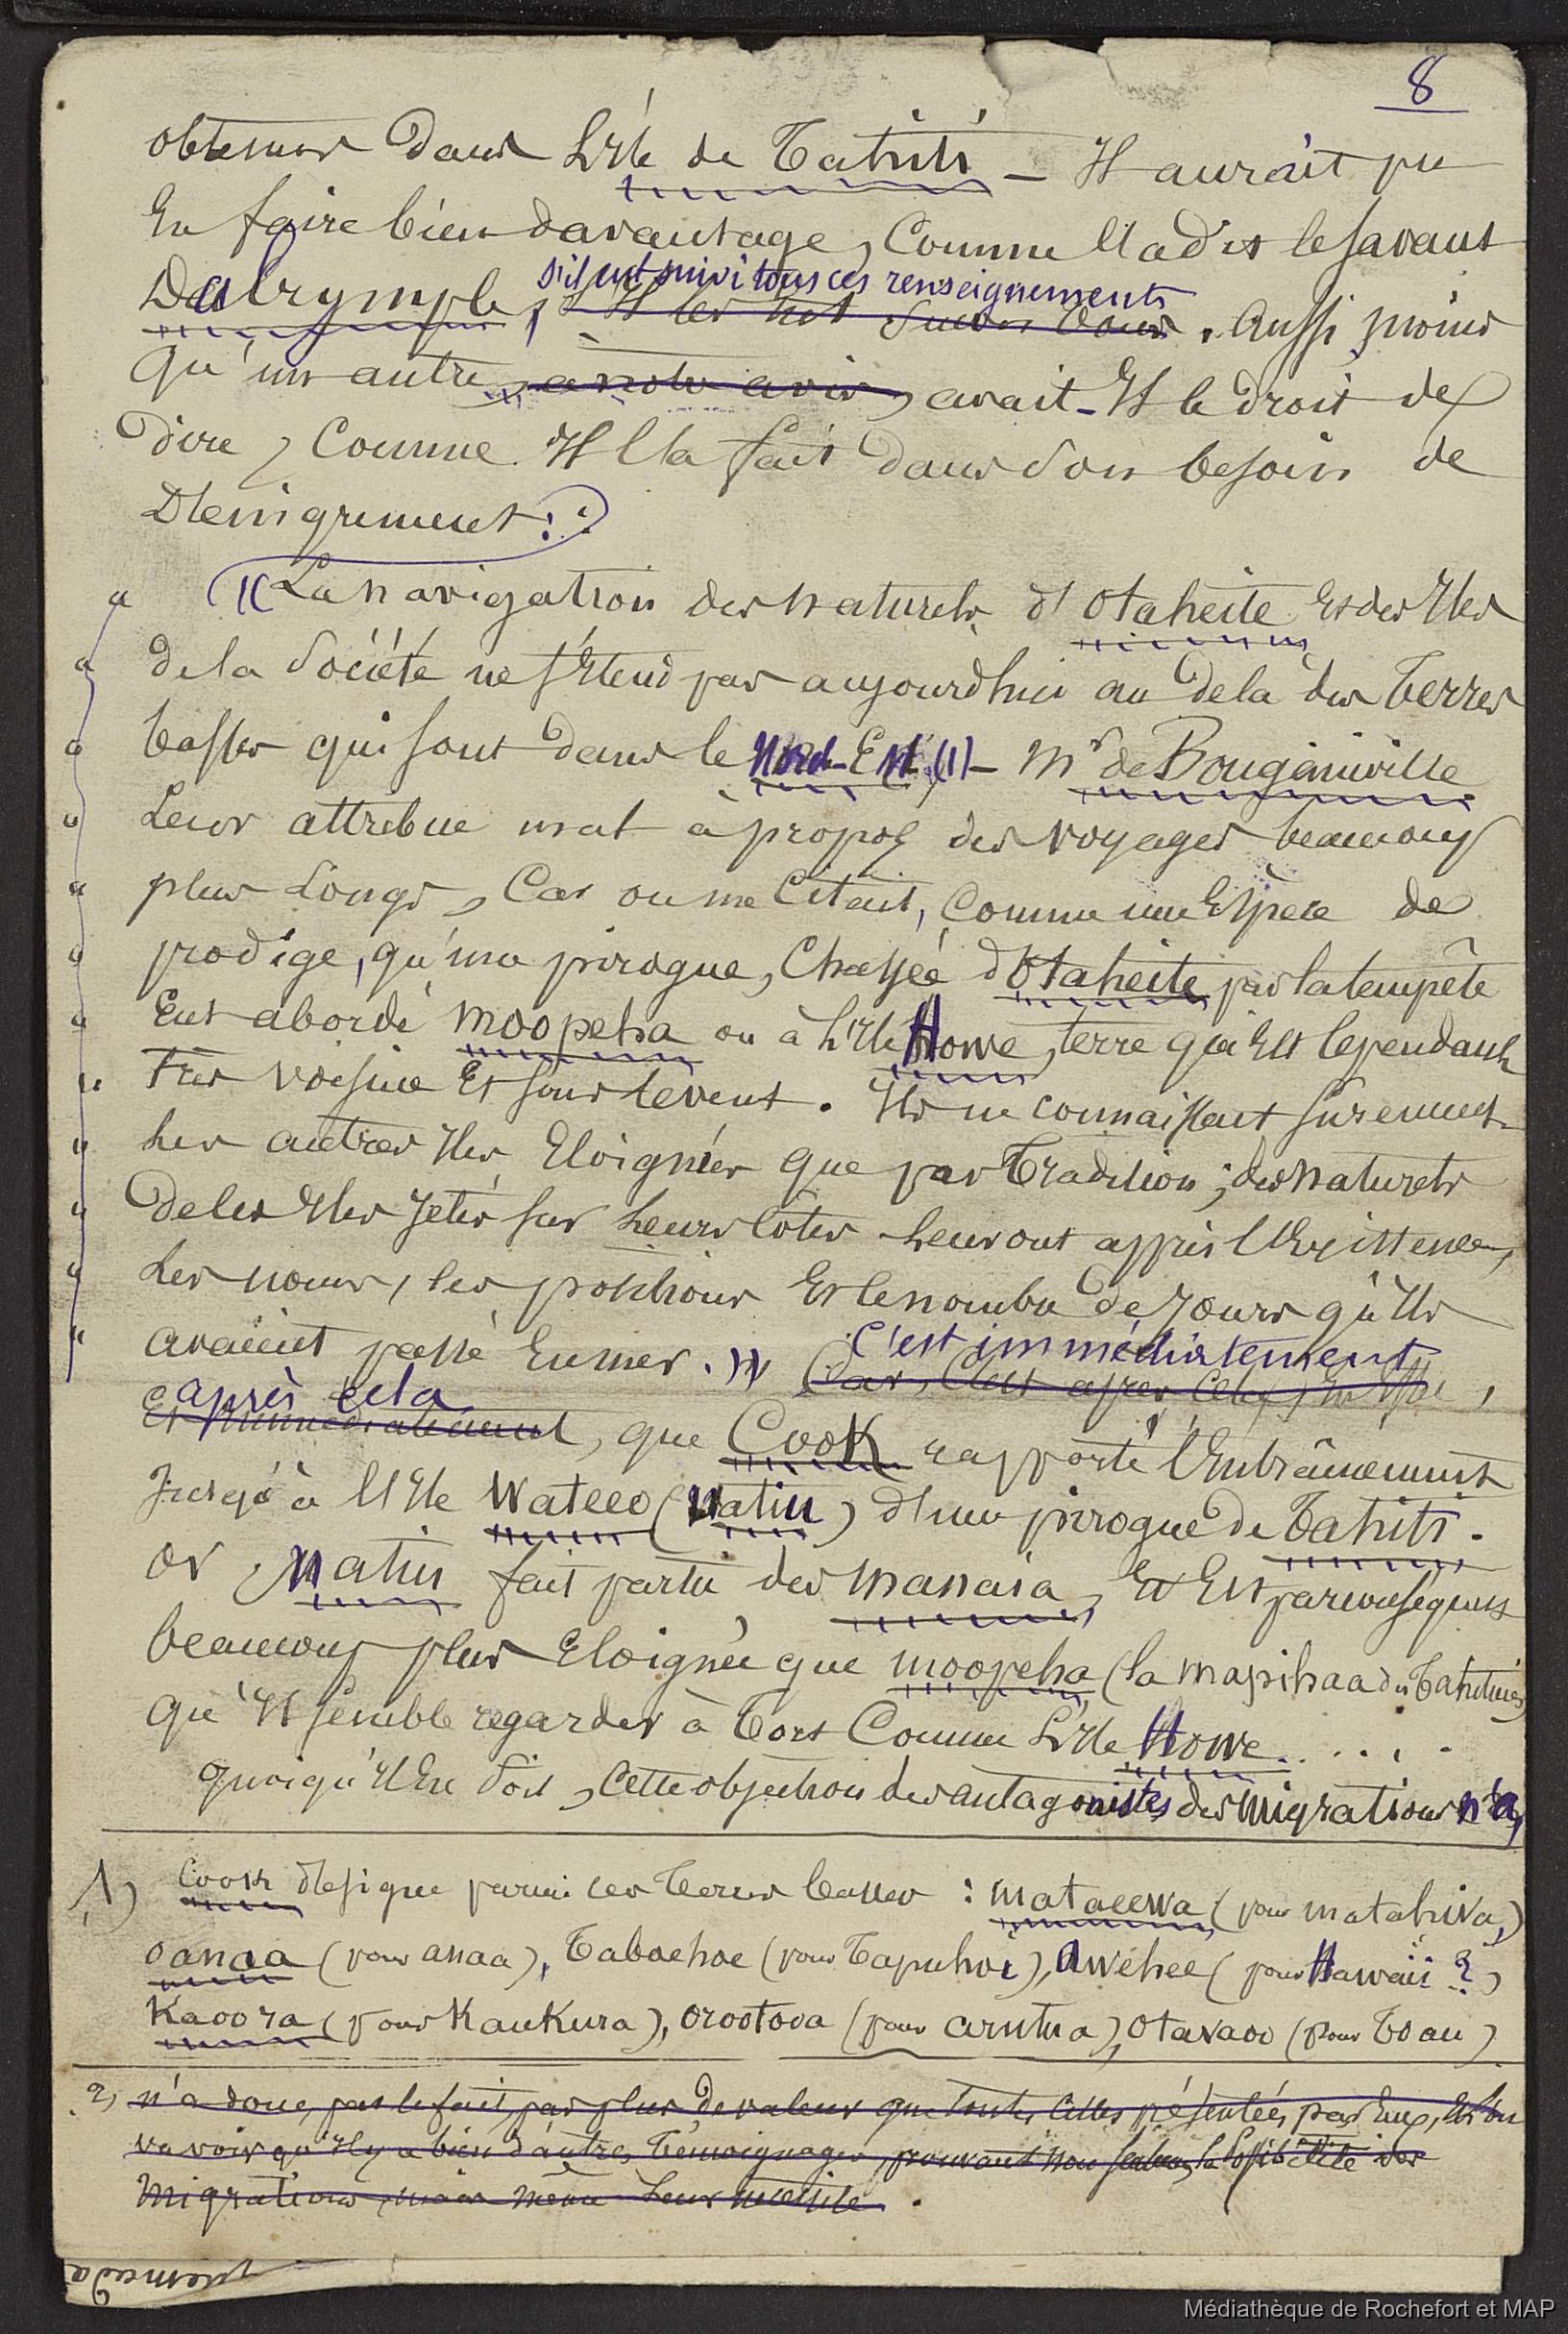 8
obtenus dans L'Ile de Tahiti — Il aurait pu
En faire bien davantage, Comme l'a dit le savant
Dalrymple, s'il eut suivi tous ces renseignements. Aussi moins
qu'un autre, à notre avis, avait-Il le droit de
dire, Comme Il l'a fait dans son besoin de
Dénigrement :
"La navigation des naturels d'Otaheite Et des Iles
de la Société ne s'Etend pas aujourd'hui au dela des Terres
basses qui sont dans le Nord-Est (1) — Mr de Bougainville
Leur attribue mal à propos des voyages beaucoup
plus Longs, Car on me Citait, Comme une Espèce de
prodige, qu'une pirogue, Chassée d'Otaheite par la tempête
Eut abordé Moopeha ou à L'Ile Howe, terre qui Est Cependant
très voisine Et sous le vent. Ils ne connaissent surement
Les autres Iles Eloignées que par Tradition; des naturels
de ces Iles Jetés sur Leurs Côtes Leur ont appris l'Existence,
Les noms, les positions Et le nombre de Jours qu'Ils
avaient passé En mer. » C'est immédiatement
Car, C'est après Cela, En Effet,
après cela
Et immédiatement, que Cook rapporte l'Entrainement
Jusqu'à l'Ile Wateeo (Watiu) d'une pirogue de Tahiti.
or Watiu fait partie des Manaia, Et Est par conséquent
beaucoup plus Eloignée que Moopeha (la Mapihaa des Tahitiens)
qu'Il semble regarder à Tort Comme L'Ile Howe.....
quoiqu'Il En soit, Cette objection des antagonistes des Migrations n'a,
1) Cook désigne parmi ces Terres basses : Mataeewa (pour Matahiva,)
Oanaa (pour anaa), Taboehoe (pour Tapuhoe), Awehee (pour Hawaii ?)
Kaoora (pour Kaukura), Orootooa (pour arutua), Otavaoo (pour Toau)
2) n'a donc, par le fait, pas plus de valeur que toutes Celles présentées par Eux, Et on
va voir qu'Il y a bien d'autres Témoignages, prouvant non seulement la possibilité des
Migrations, mais même Leur
Médiathèque de Rochefort et MAP